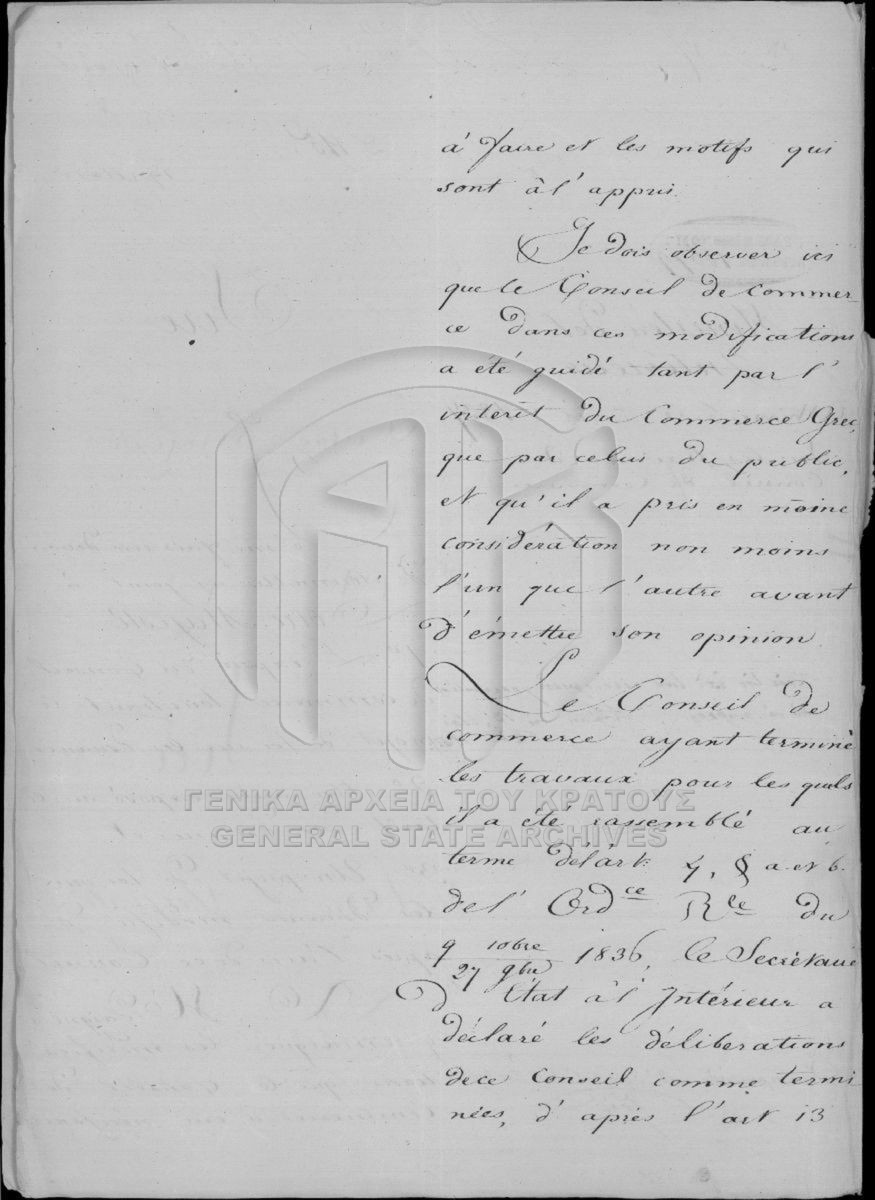 á faire et les motifs qui
sont à l'appui.
Je dois observer ici
que le Conseil de commer
ce dans ces modifications
a été guidé tant par l'
interêt du Commerce Grec,
que par celui du public,
et qu'il a pris en même
considération non moins
l'un que l'autre avant
d'émettre son opinion
Le Conseil de
commerce ayant terminé
les travaux pour les quels
il a été rassemblé au
ΓΕΝΙΚΑ ΑΡΧΕΙΑ ΤΟΥ ΚΡΑΤΟΥΣ
GENERAL STATE ARCHIVES
terme de l'art: 4, § a et b.
de l' Ordce Rle du
9 10bre / 27 9bre 1836, le Secrétaire
d' État à l' Intérieur a
déclaré les déliberations
de ce Conseil comme termi
nées, d' après l'art 13